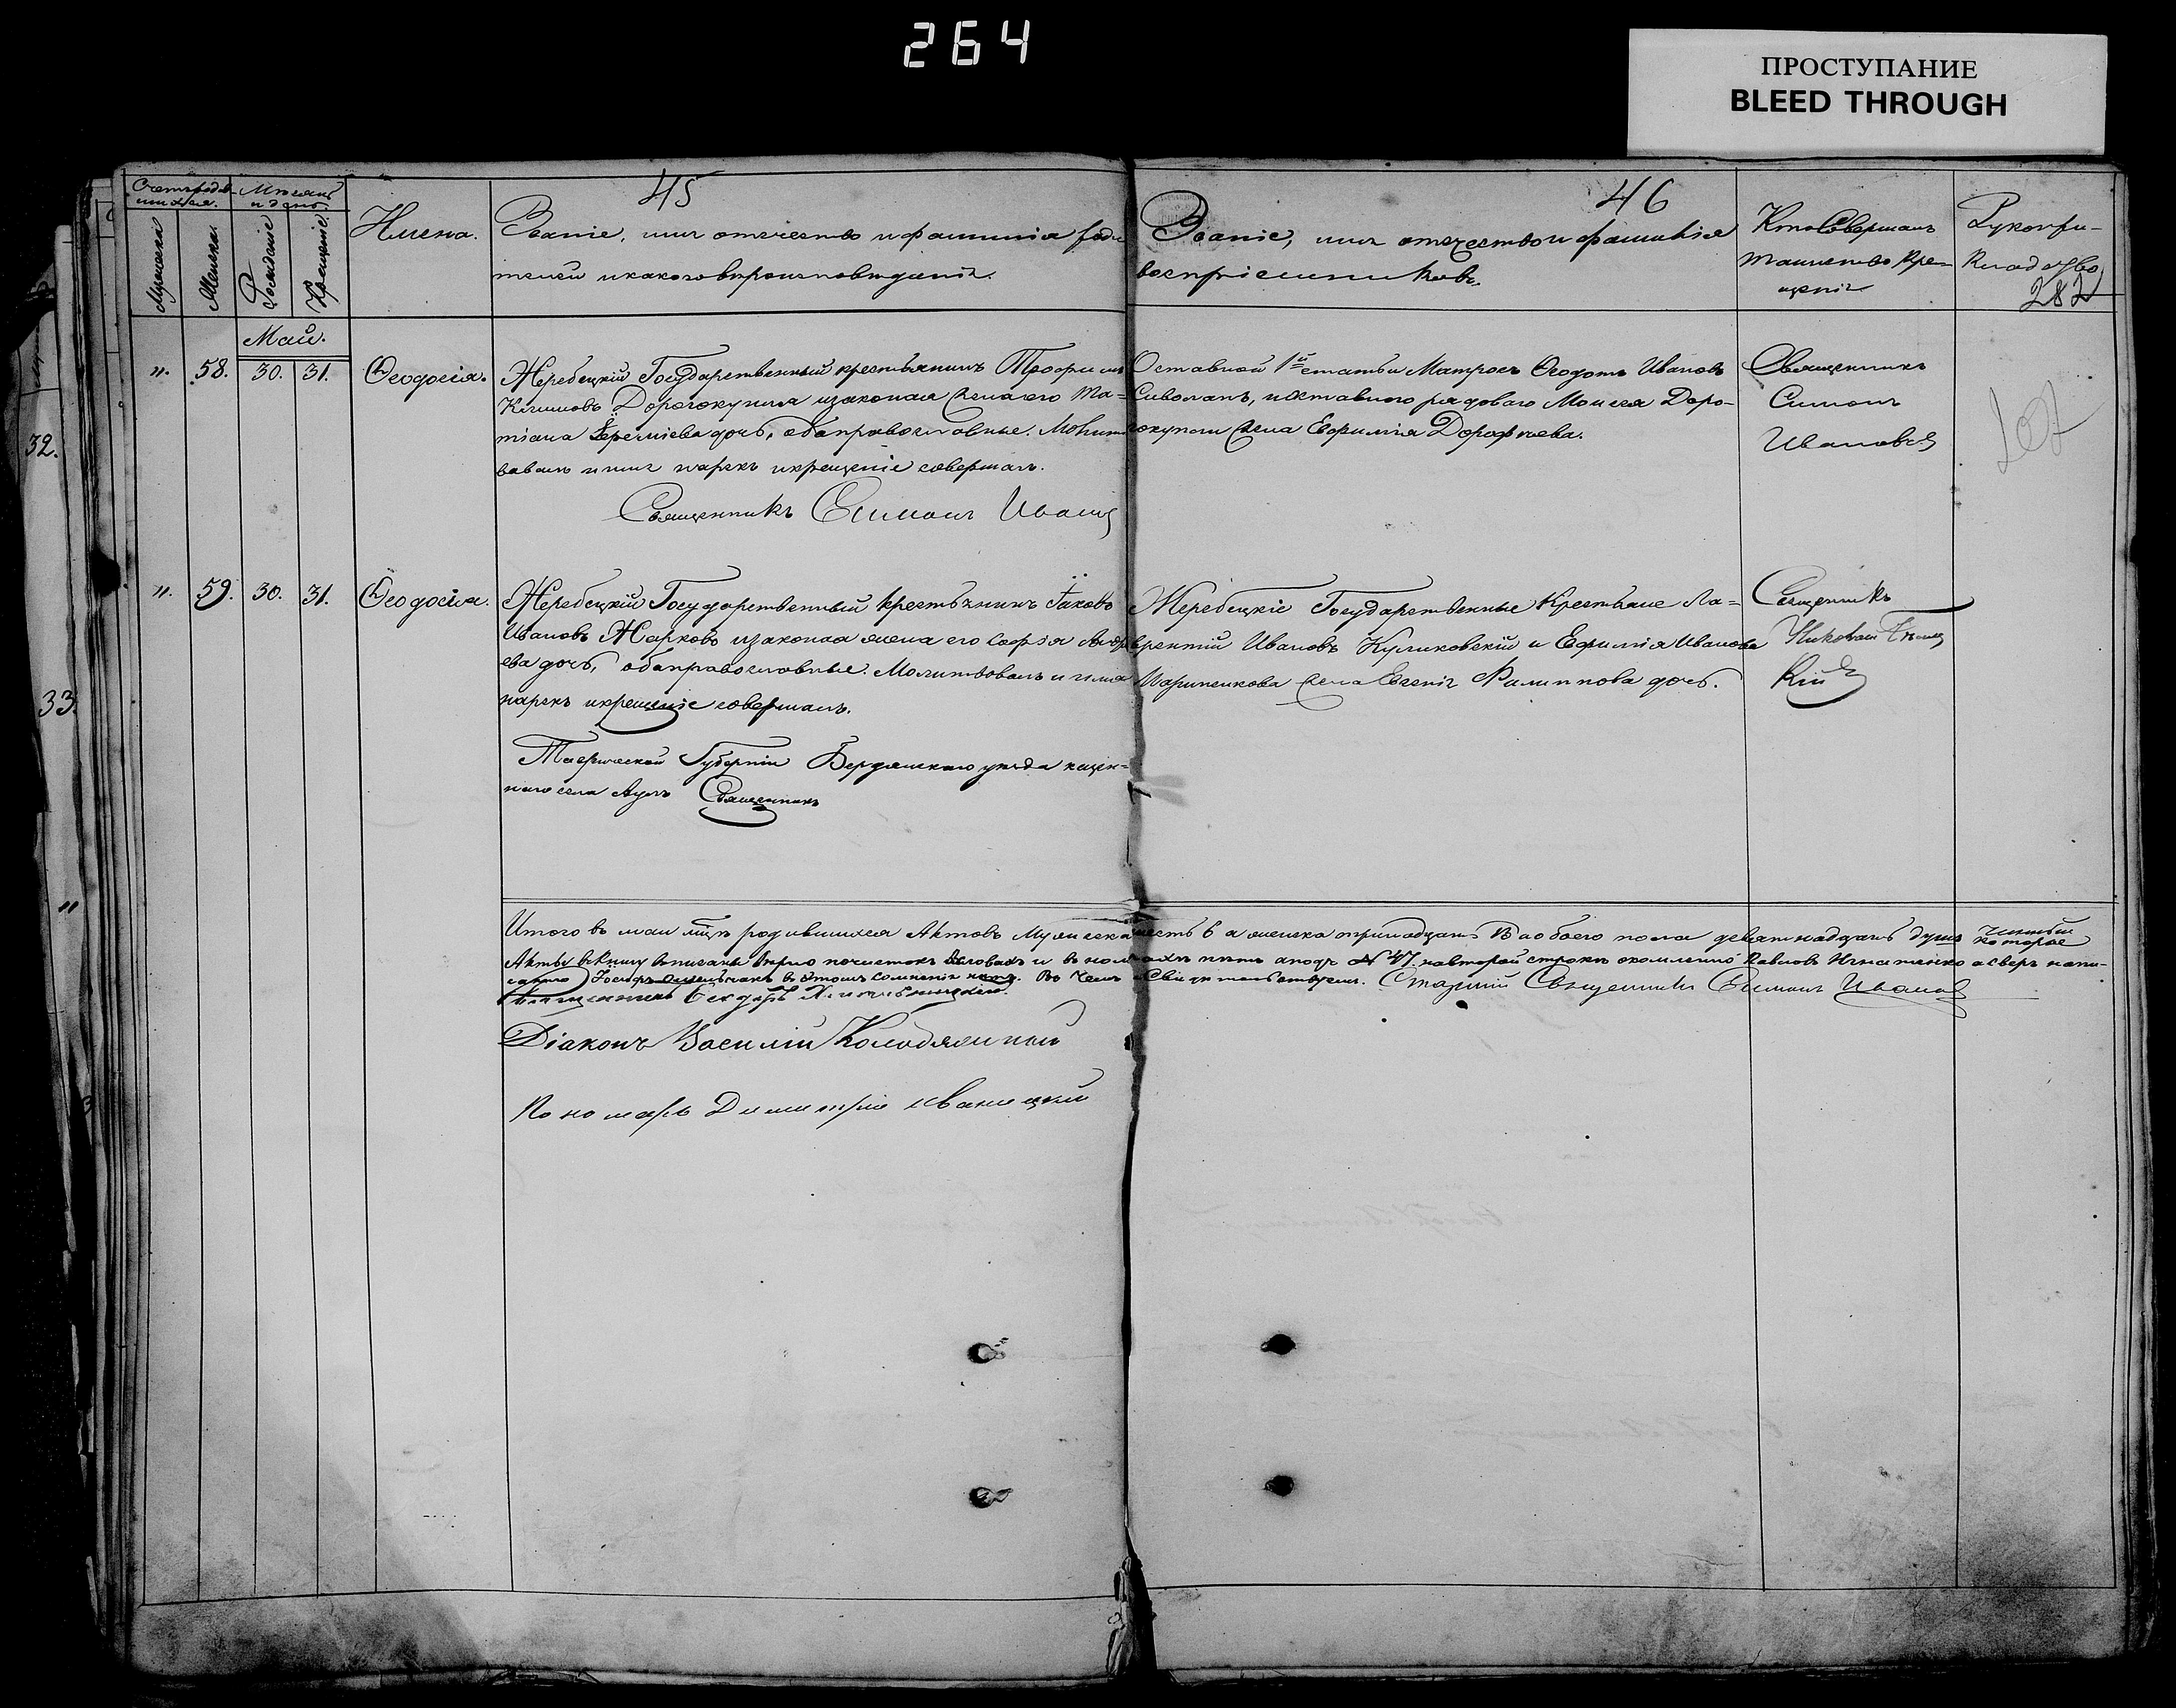 264
ПРОСТУПАНИЕ
BLEED THROUGH
45
46
Счетъ родив-
шихся.
Мѣсяцъ
и день.
Мужеска
Женска.
Рожденіе
Крещеніе.
Имена.
Званіе, имя отчество и фамилія роди
телей и какого вѣроисповѣданія.
Званіе, имя отчество и фамилія
воспріемниковъ.
Кто совершалъ
таинство кре-
щенія
Рукопри-
кладство
282
Май.
". 58. 30. 31. Ѳеодосія.
Жеребецкій Государственный крестьянинъ Трофимъ
Дорогокупля и законая жена его Та-
тіана Іереміева дочь, оба православные. Молит
вовалъ и имя нарекъ и крещеніе совершалъ.
Священникъ Симонъ Иванов
Отставной 1й статьи Матросъ Ѳеодотъ Ивановъ
и отставного рядоваго Моисея Доро-
гокупли жена Евфимія Дорофѣева.
Священникъ
Симонъ
Ивановъ
". 59. 30. 31. Ѳеодосія.
Жеребецкій Государственный крестьянинъ Іаковъ
Ивановъ Жарковъ и законая жена его Софія Андр
ева дочь, оба православные. Молитвовалъ и имя
нарекъ и крещеніе совершалъ.
Таврической Губерніи Бердянскаго уѣзда казен-
наго села Аулъ Священникъ
Жеребецкіе Государственные Крестьяне Ла-
врентій Ивановъ Куликовскій и Евфимія Иванова
жена Евгенія Филиппова дочь.
Священникъ
Николай
кій
32.
33.
"
Итого въ маи мцѣ родившихся Актовъ Мужеска шесть 6 а женска тринадцать 13 а обоего пола девятнадцать душъ
которые
Акты въ книгу вписаны вѣрно почистокъ и въ № 47 на второй строкѣ Павловъ Игнатенко а сверхъ напи-
въ этомъ сомненія нетъ. Въ чемъ Свидѣтельствуемъ. Старшій Священникъ Симонъ Иванов
Діаконъ Василій
Пономарь Димитрій Иваницкій